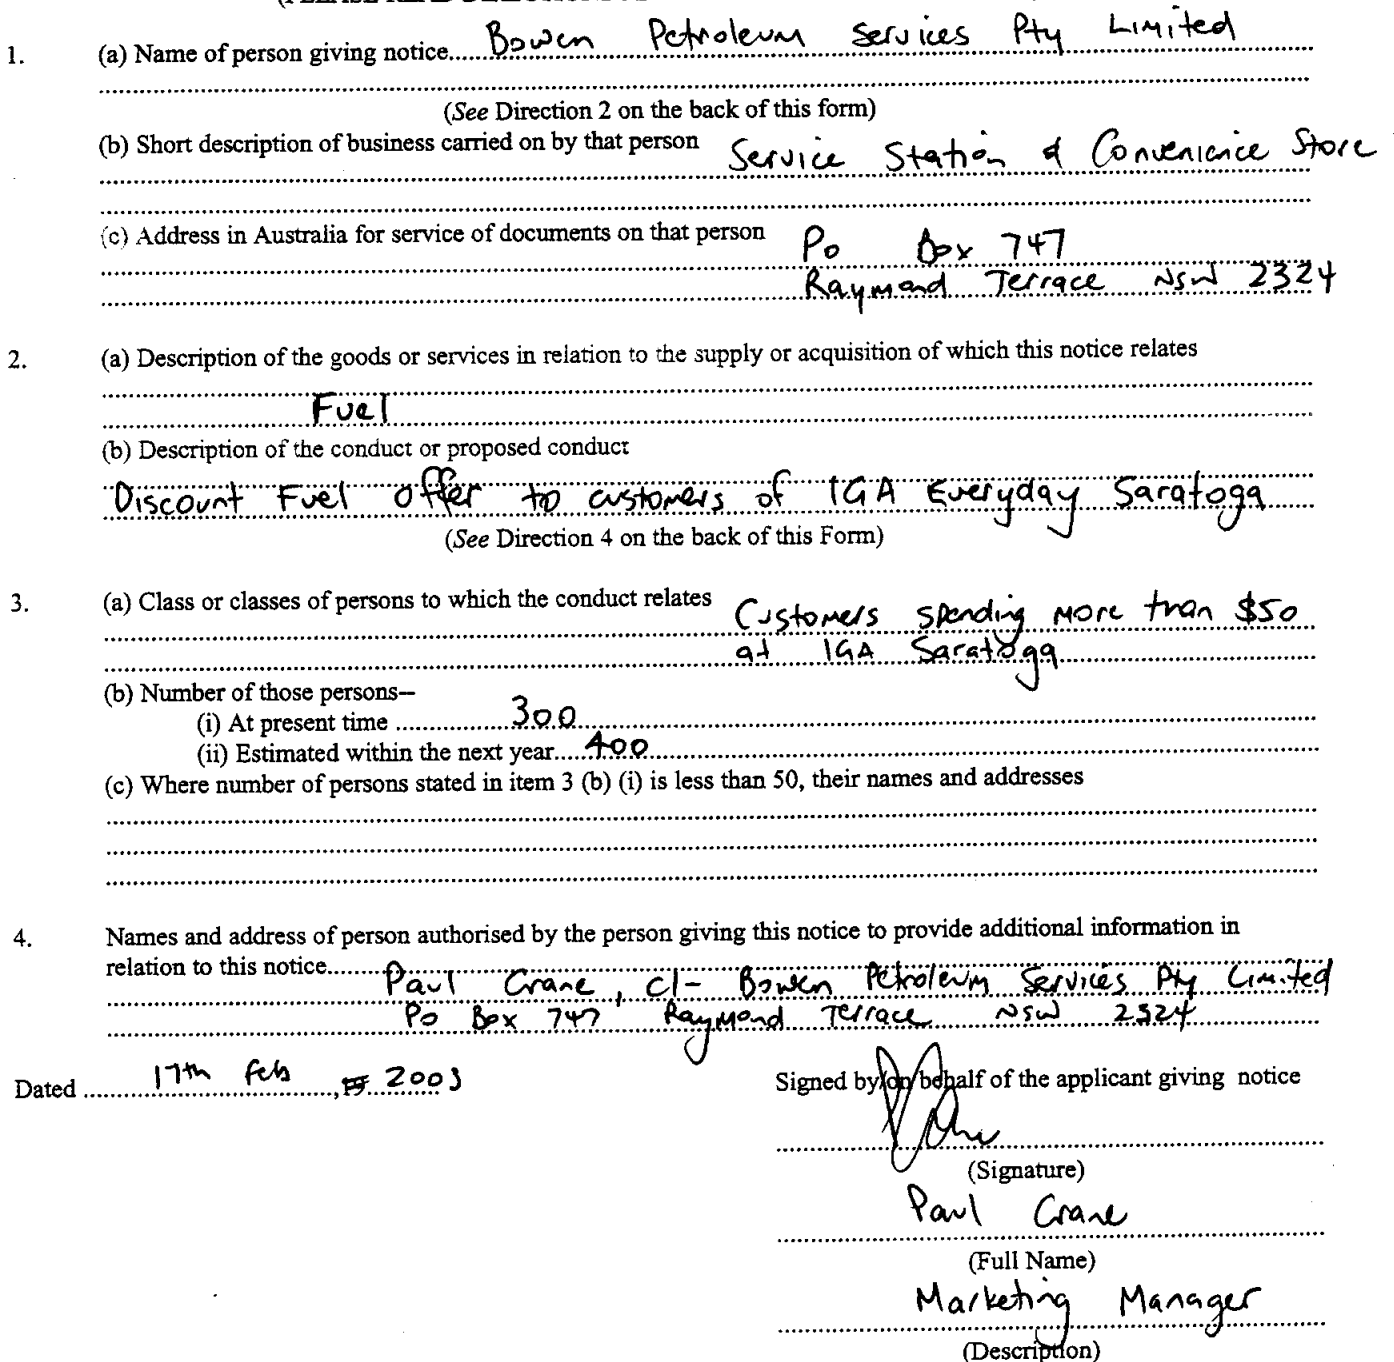 1. (a) Name of person giving notice Bowen Petroleum Services Pty Limited
(See Direction 2 on the back of this form)
(b) Short description of business carried on by that person Service Station & Convenience Store
(c) Address in Australia for service of documents on that person Po Box 747
Raymond Terrace NSW 2324
2. (a) Description of the goods or services in relation to the supply or acquisition of which this notice relates
Fuel
(b) Description of the conduct or proposed conduct
Discount Fuel offer to customers of IGA Everyday Saratoga
(See Direction 4 on the back of this Form)
3. (a) Class or classes of persons to which the conduct relates Customers spending more than $50
at IGA Saratoga
(b) Number of those persons–
(i) At present time 300
(ii) Estimated within the next year 400
(c) Where number of persons stated in item 3 (b) (i) is less than 50, their names and addresses
4. Names and address of person authorised by the person giving this notice to provide additional information in
relation to this notice Paul Crane, c/- Bowen Petroleum Services Pty Limited
Po Box 747 Raymond Terrace NSW 2324
Dated 17th Feb, 2003
Signed by/on behalf of the applicant giving notice
(Signature)
Paul Crane
(Full Name)
Marketing Manager
(Description)